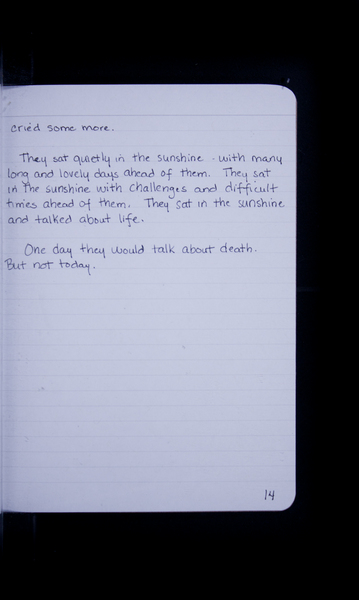 cried some more.
They sat quietly in the sunshine with many
long and lovely days ahead of them. They sat
in the sunshine with challenges and difficult
times ahead of them. They sat in the sunshine
and talked about life.
One day they would talk about death.
But not today.
14